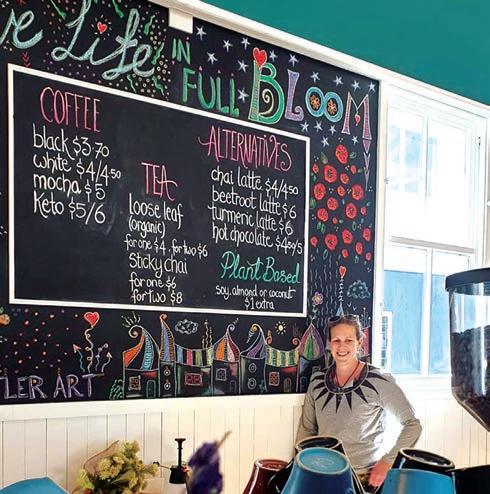 e Life IN
FULL BLOOM
COFFEE
black $3.70
white $4/4.50
mocha $5
Keto $5/6
TEA
loose leaf
(organic)
for one $4. for two $6
Sticky Chai
for one $6
for two $8
ALTERNATIVES
chai latte $4/4.50
beetroot latte $6
turmeric latte $6
hot chocolate $4.50/5
Plant Based
soy, almond or coconut
$1 extra
TLER ART